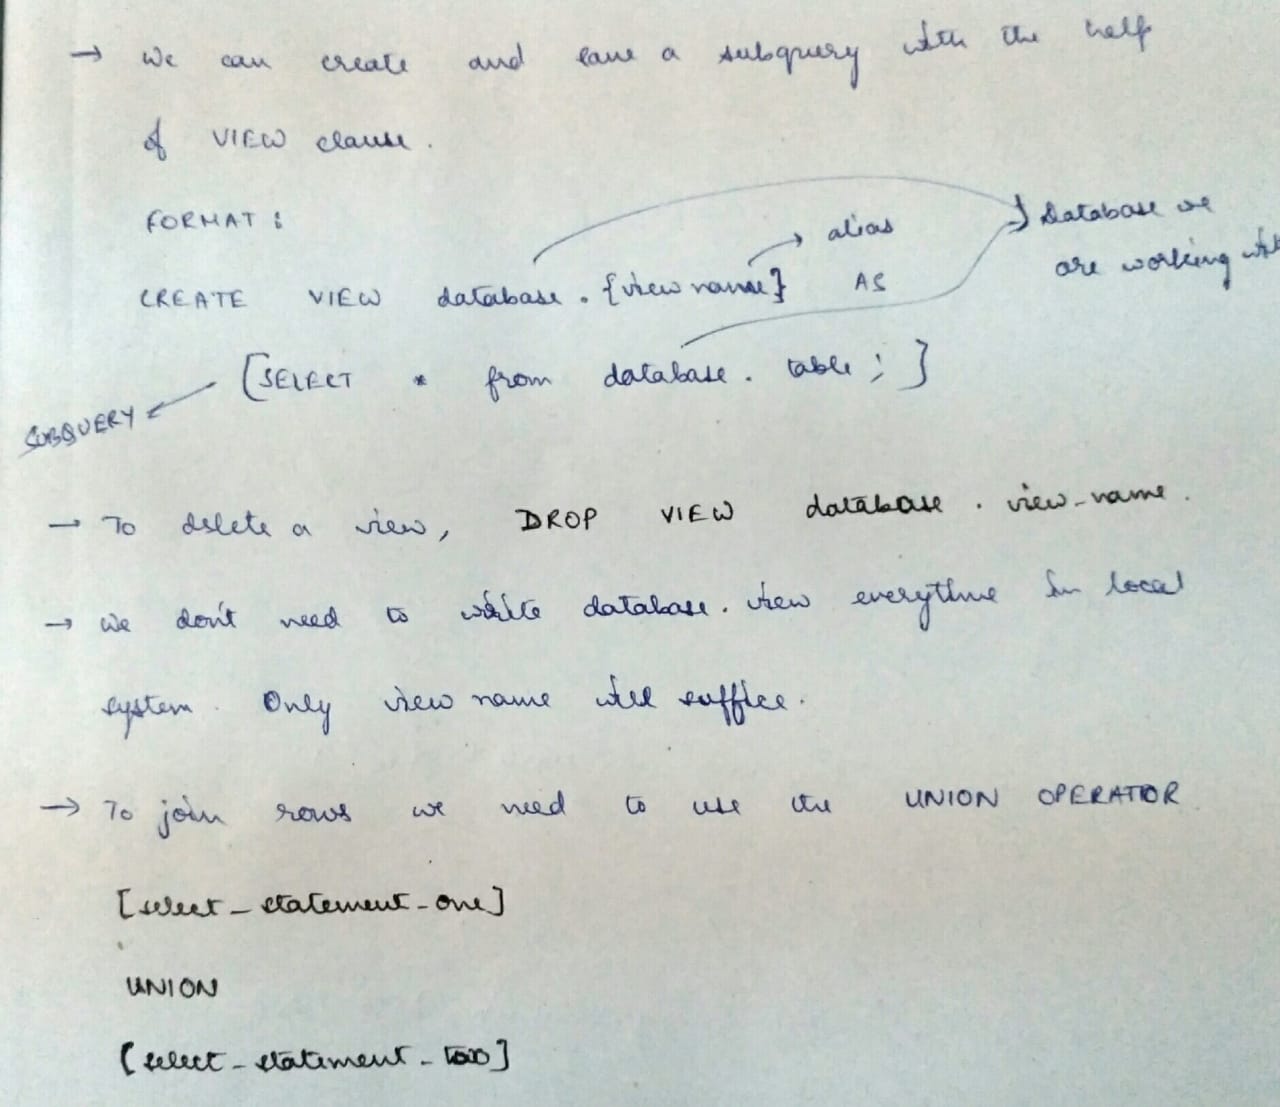 → We can create and save a subquery with the help
of VIEW clause.
FORMAT :
→ alias
Database we
are working with
CREATE VIEW database . {view name} AS
[SELECT * from database . table ; ]
SUBQUERY
→ To delete a view, DROP VIEW database . view_name .
→ We don't need to write database . view everytime in local
system . Only view name will suffice .
→ To join rows we need to use the UNION OPERATOR
[select _ statement _ one]
UNION
[select _ statement _ two]